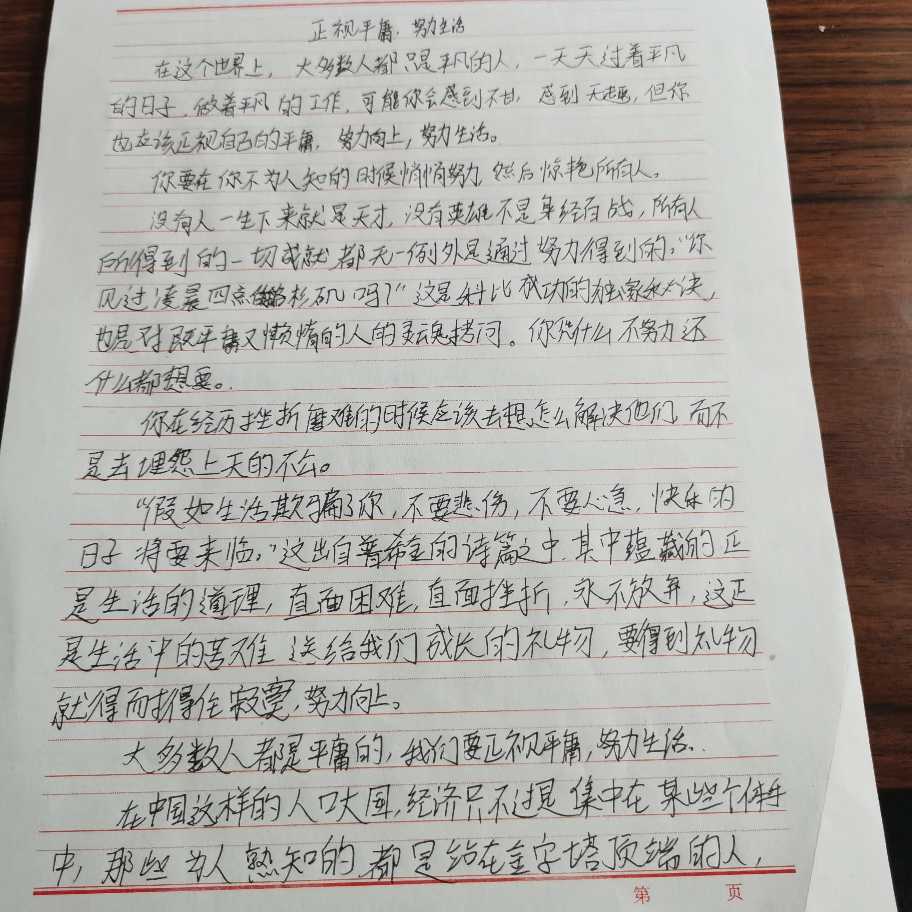 正视平庸,努力生活
在这个世界上,大多数人都只是平凡的人,一天天过着平凡
的日子,做着平凡的工作,可能你会感到不甘,感到无趣,但你
也应该正视自己的平庸,努力向上,努力生活。
你要在你不为人知的时候悄悄努力,然后惊艳所有人。
没有人一生下来就是天才,没有英雄不是身经百战,所有人
所得到的一切成就都无一例外是通过努力得到的,“你
见过凌晨四点的洛杉矶吗?”这是科比成功的独家秘诀,
也是对既平庸又懒惰的人的灵魂拷问。你凭什么不努力还
什么都想要。
你在经历挫折磨难的时候应该去想怎么解决他们而不
是去埋怨上天的不公。
“假如生活欺骗了你,不要悲伤,不要心急,快乐的
日子将要来临,”这出自普希金的诗篇之中,其中蕴藏的正
是生活的道理,直面困难,直面挫折,永不放弃,这正
是生活中的苦难送给我们成长的礼物,要得到礼物
就得耐得住寂寞,努力向上。
大多数人都是平庸的,我们要正视平庸,努力生活。
在中国这样的人口大国,经济只不过是集中在某些个体手
中,那些为人熟知的都是站在金字塔顶端的人,
第 页